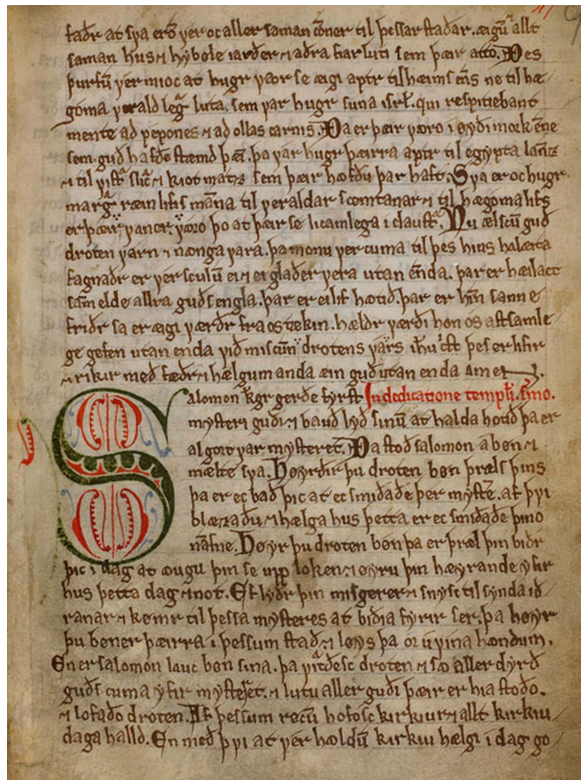 faðr at sva erð ver oc aller saman comner til þessar staðar. æigu allt
saman hus ⁊ hybole iarðer ⁊ aðra fiarluti sem þær atto. Þes
þurfu ver mioc at hugr vaar se æigi aptr til hæims ens ne til hæ
goma verald legra luta. sem var hugr suna isrł. qui respitiebant
mente ad pepones ⁊ ad ollas carnis. Þa er þær varo i øyði mork enne
sem guð hafðe stæmd þæim. þa var hugr þæirra aptr til egypta lanz
⁊ til slic ⁊ kiot matz sem þær hæfðu þar haft. Sva er oc hugr
margra ræin lifis manna til veraldar scæmtanar ⁊ til hægoma lifs
er þær vaner varo þo at þær se licamlega i claustr. Nu ælscum guð
droten varn ⁊ nænga vara. þa monu ver cuma til þes hins halæita
fagnaðr er ver sculum ei ⁊ ei glaðer vera utan enda. þar er hæilact
samelde allra guðs engla. þar er eilif hotið þar er hinn sanne
friðr sa er æigi værðr fra os tekin. hældr værði hon os astsamle
ge gefen utan enda við miscunn drotens vars ihu cst þes er lifir
⁊ rikir með fæðr ⁊ hælgum anda æin guð utan enda amen.
Salomon kgr gerðe fyrst In dedicatione templi. sermo.
mysteri guði ⁊ bauð lyð sinum at halda hotið þa er
algort var mysteret. Þa stoð salomon a bøn ⁊
mælte sva. Høyrðu þu droten bøn þræls þins
þa er ec bað þic at ec smiðaðe þer myster. at þu
blæzaðu ⁊ hælga hus þetta er ec smiðaðe þino
namne. Høyr þu droten bøn þa er þræl þin biðr
þic i dag at øugu þin se upp loken ⁊ øyru þin høyrande yfir
hus þetta dag ⁊ not. Ef lyðr þin misgerer ⁊ snysc til synda ið
ranar ⁊ kømr til þessa mysteres at biðia fyrir ser. þa høyr
þu bøner þæirra i þessum stað ⁊ løys þa or uvina hændum.
En er salomon lauc bøn sina. þa vitraðesc droten ⁊ so aller dyrð
guðs cuma yfir mysteret. ⁊ lutu aller guði þæir er hia stoðo.
⁊ lofaðo droten. Af þessum rocum hofosc kirkiur ⁊ allt kirkiu
daga halld. En með þvi at ver hældum kirkiu hælgi i dag go